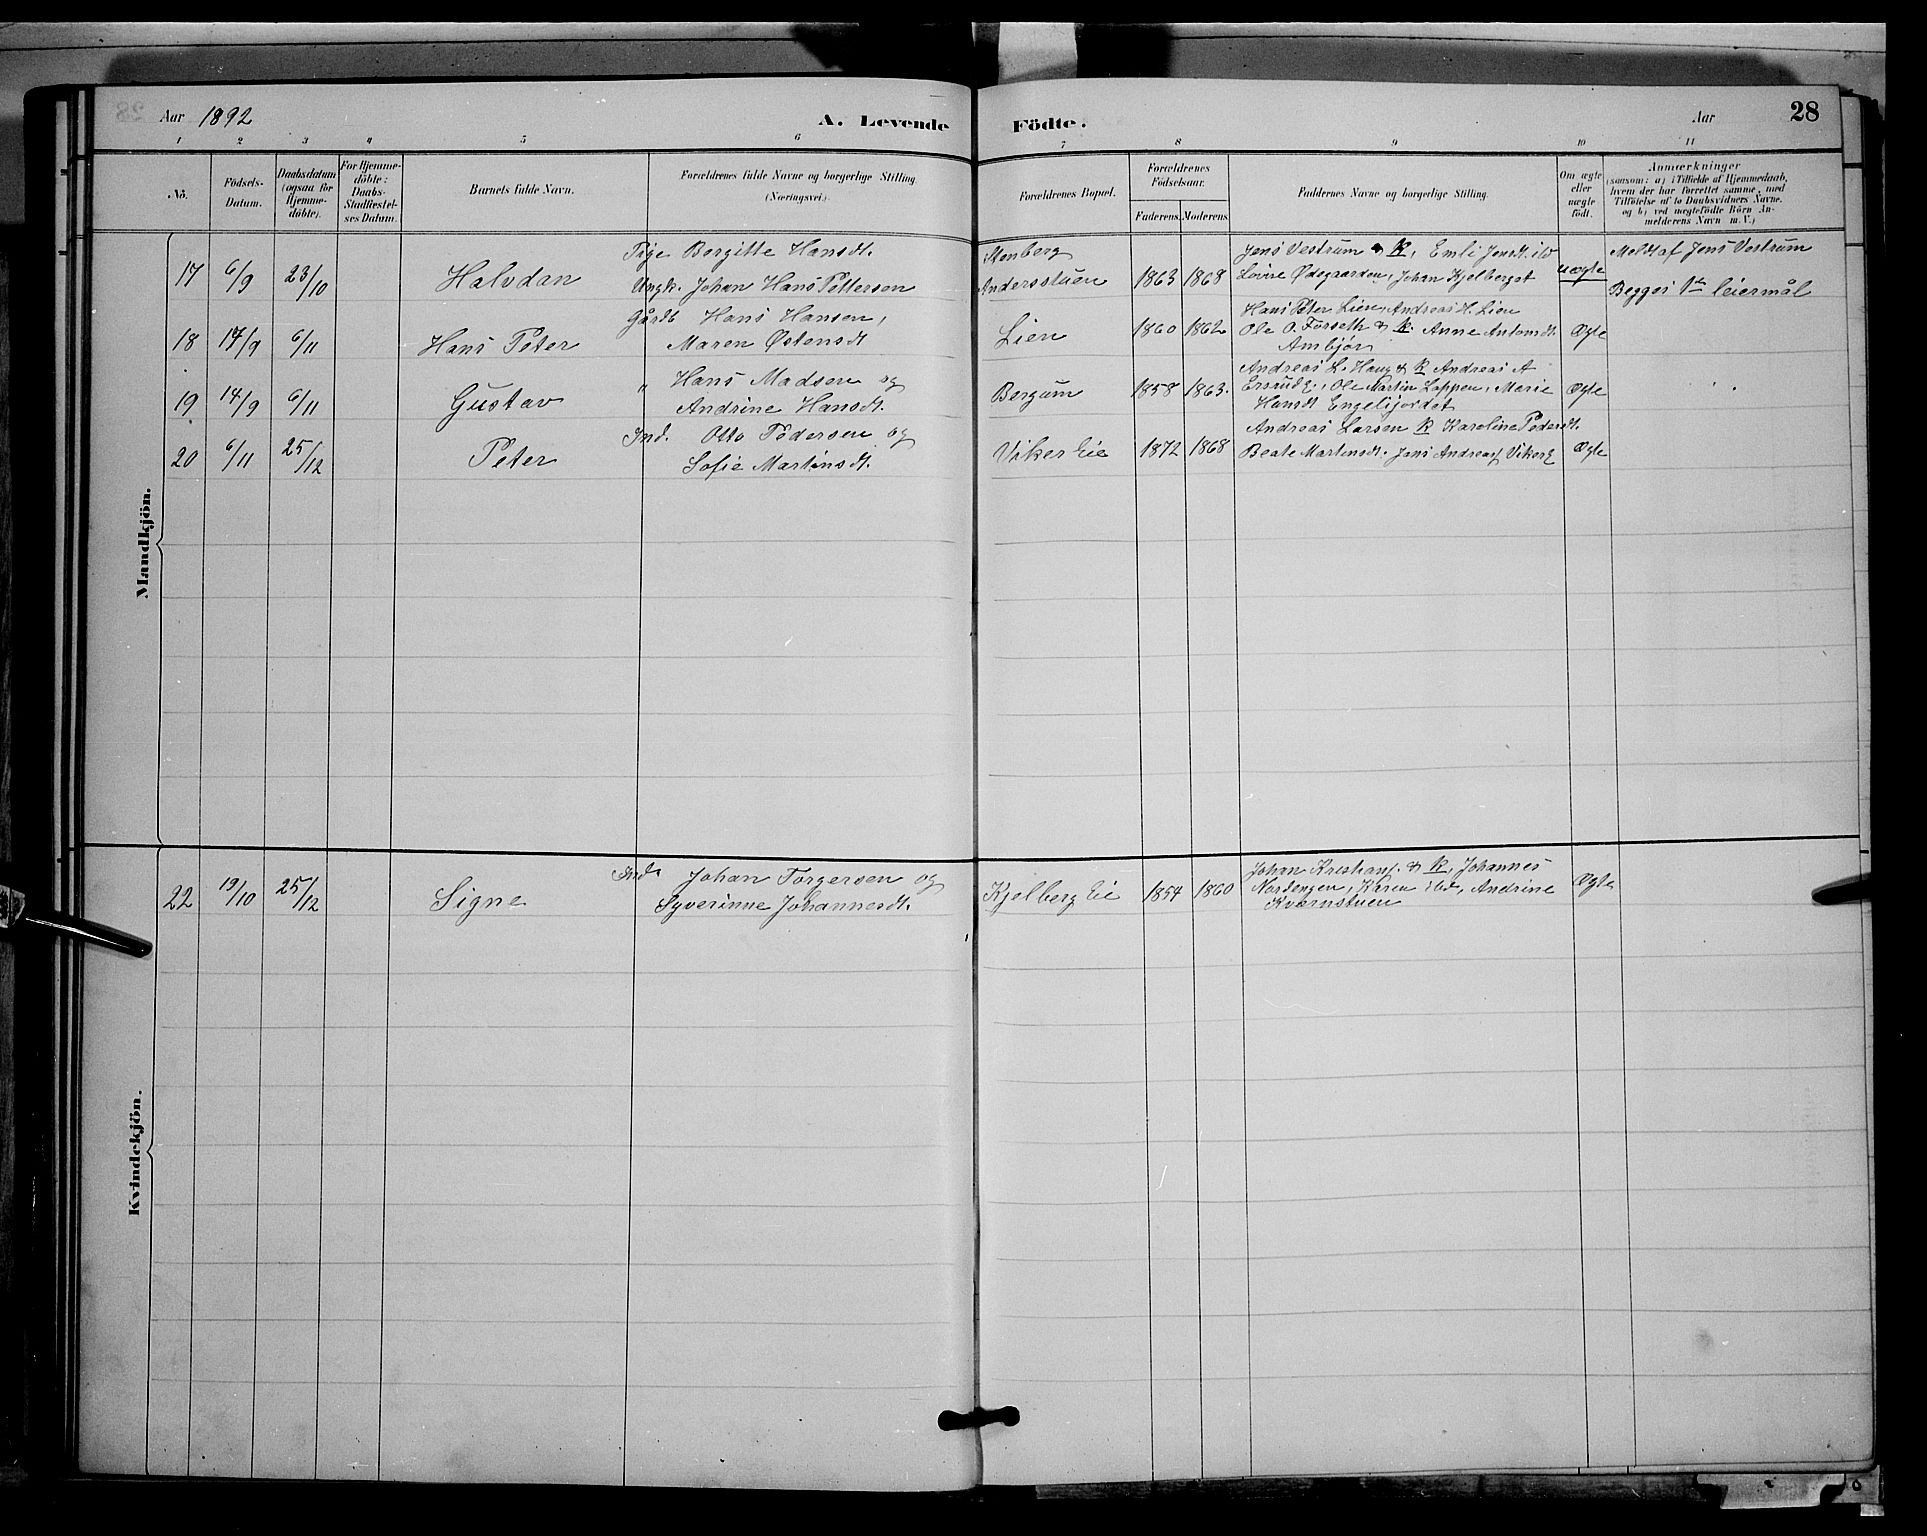 Aar 1892 A. Levende Födte. Aar 28
1 2 3 4 5 6 7 8 9 10 11
No.
Födsels-Datum.
Daabsdatum (ogsaa for Hjemme-döbte).
For Hjemme-döbte: Daabs-Stadfæstelses Datum.
Barnets fulde Navn.
Forældrenes fulde Navne og borgerlige Stilling (Næringsvei).
Forældrenes Bopæl.
Forældrenes Födselsaar.
Faderens. Moderens.
Faddernes Navne og borgerlige Stilling.
Om ægte eller uægte födt.
Anmærkninger
(saasom: a) i Tilfælde af Hjemmedaab, hvem der har forrettet samme, med Tilföielse af to Daabsvidners Navne, og b) ved uægtefödte Börn Anmelderens Navn m. V.)
Mandkjön.
Pige Borgitte Hansdt. Stenberg Jens Vestrum & K, Emli Jensdt. ibd Meldt af Jens Vestrum
17 6/9 23/10 Halvdan Ungk. Johan Hans Pettersen Andersstuen 1863 1868 Lovise Ødegaarden, Johan Kjelberget uægte Begges 1ste leiermål
Gårdb Hans Hansen, Hans Peter Lien, Andreas H. Lien
18 17/9 6/11 Hans Peter Maren Østensdt Lien 1860 1862 Ole O. Forseth & K. Anne Antonsdt. Ægte
Ambjør
" Hans Madsen og Andreas L. Haug & K Andreas A
19 14/9 6/11 Gustav Andrine Hansdt. Bergum 1858 1863. Ersrud, Ole Martin Lappen, Marie Ægte
Hansdt Engelisjordet
Ind. Otto Pedersen og Andreas Larsen K Karoline Pedersdt.
20 6/11 25/12 Peter Sofie Martinsdt. Viker Eie 1872 1868 Beate Martinsdt. Jens Andreas Viker Ægte
Kvindekjön.
Ind. Johan Torgersen og Johan Kristians. & K, Johannes
22 19/10 25/12 Signe Syverinne Johannesdt. Kjelberg Eie 1854 1860 Nordengen, Karen ibd, Andrine Ægte
Kværnstuen